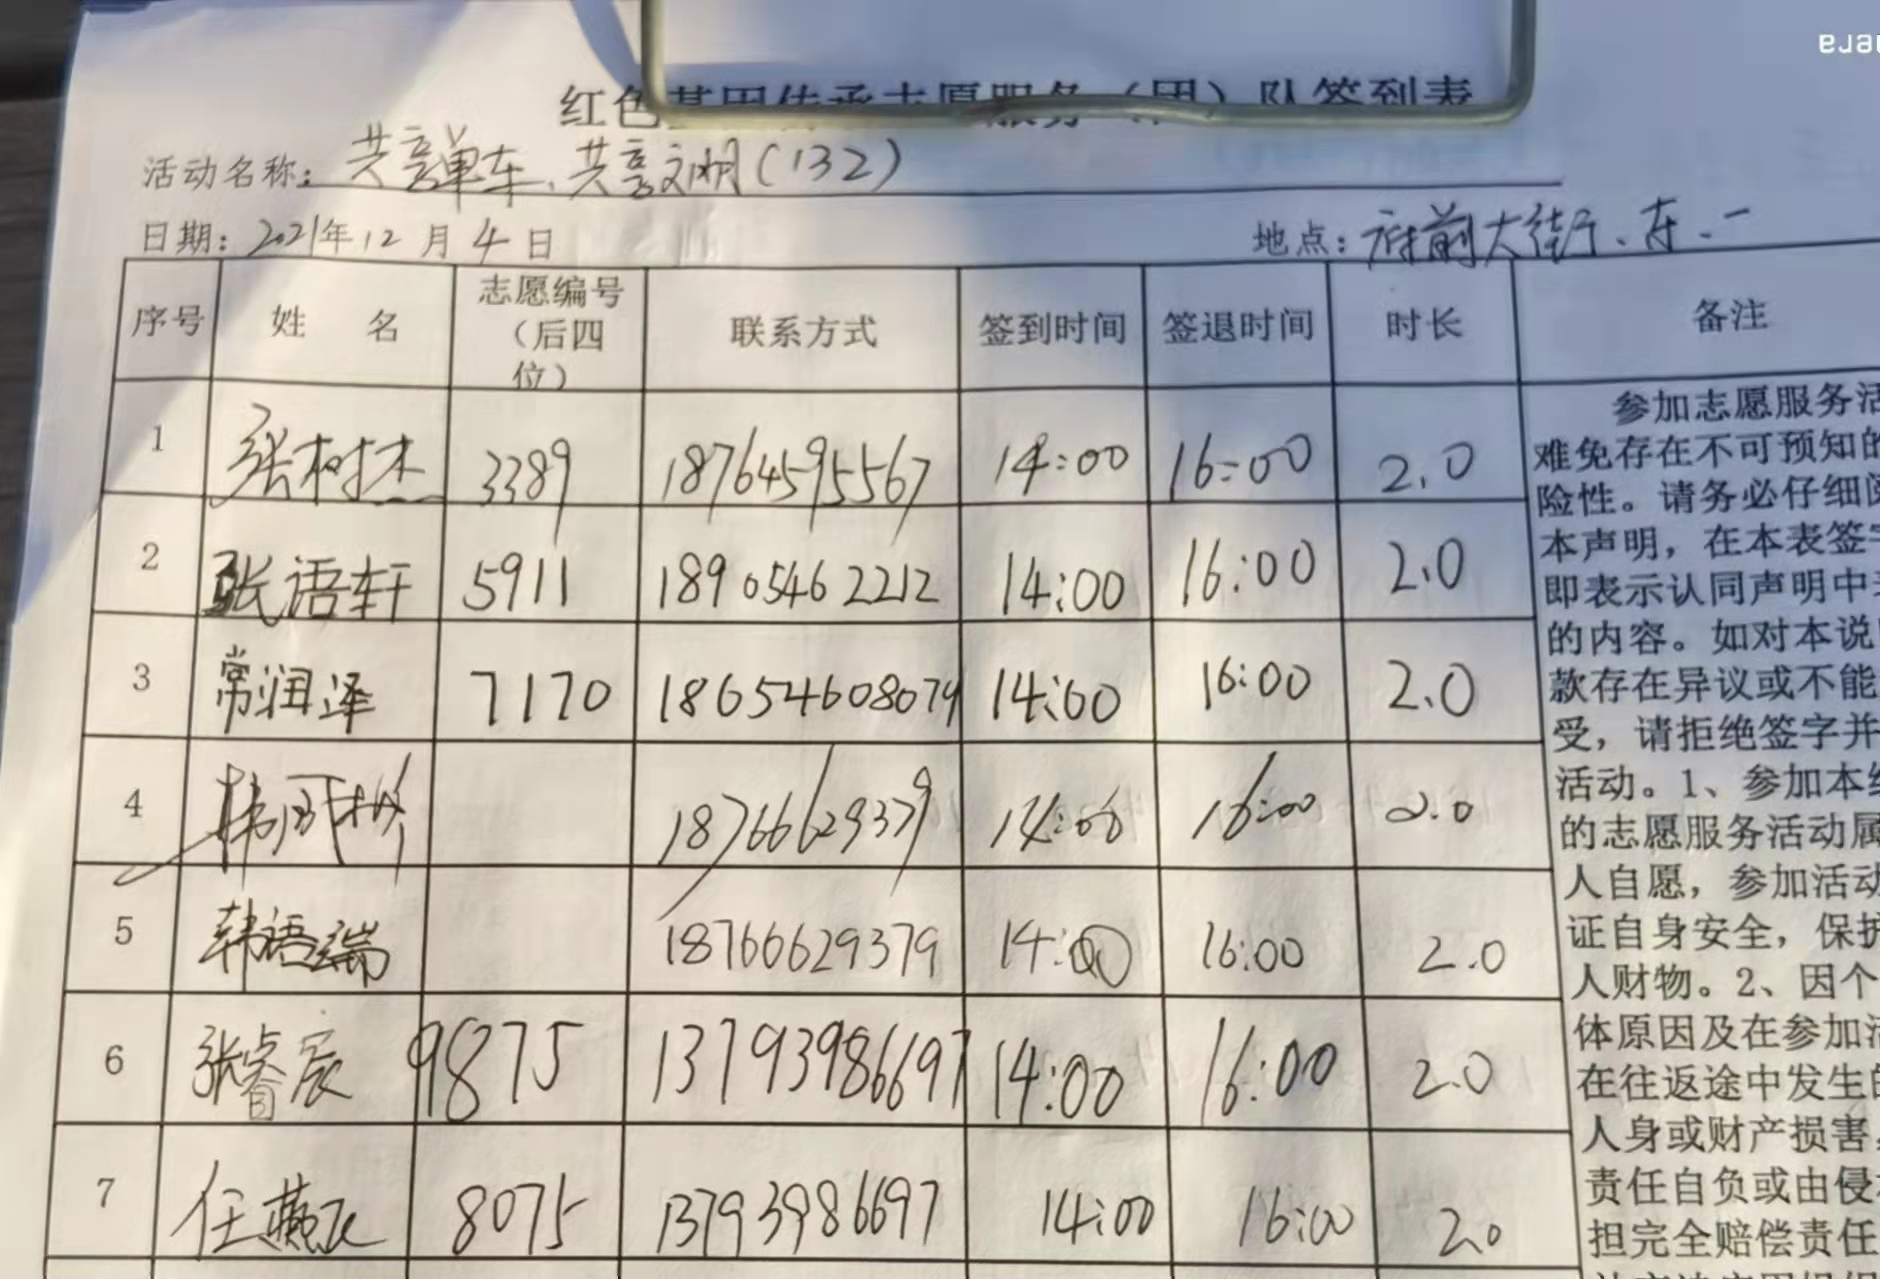 红色基因传承志愿服务(团)队签到表
活动名称:共享单车、共享文明(132)
日期:2021年12月4日 地点:府前大街、东、一
序号 姓名 志愿编号(后四位) 联系方式 签到时间 签退时间 时长 备注
1 张树杰 3389 18764595567 14:00 16:00 2.0
2 张语轩 5911 18905462212 14:00 16:00 2.0
3 常润泽 7170 18654608079 14:00 16:00 2.0
4 18766629379 14:00 16:00 2.0
5 韩语端 18766629379 14:00 16:00 2.0
6 张睿辰 9875 13793986697 14:00 16:00 2.0
7 任燕飞 8075 13793986697 14:00 16:00 2.0
参加志愿服务活
难免存在不可预知的
险性。请务必仔细阅
本声明,在本表签字
即表示认同声明中
的内容。如对本说
款存在异议或不能
受,请拒绝签字并
活动。1、参加本组
的志愿服务活动属
人自愿,参加活动
证自身安全,保护
人财物。2、因个
体原因及在参加活
在往返途中发生的
人身或财产损害,
责任自负或由侵
担完全赔偿责任